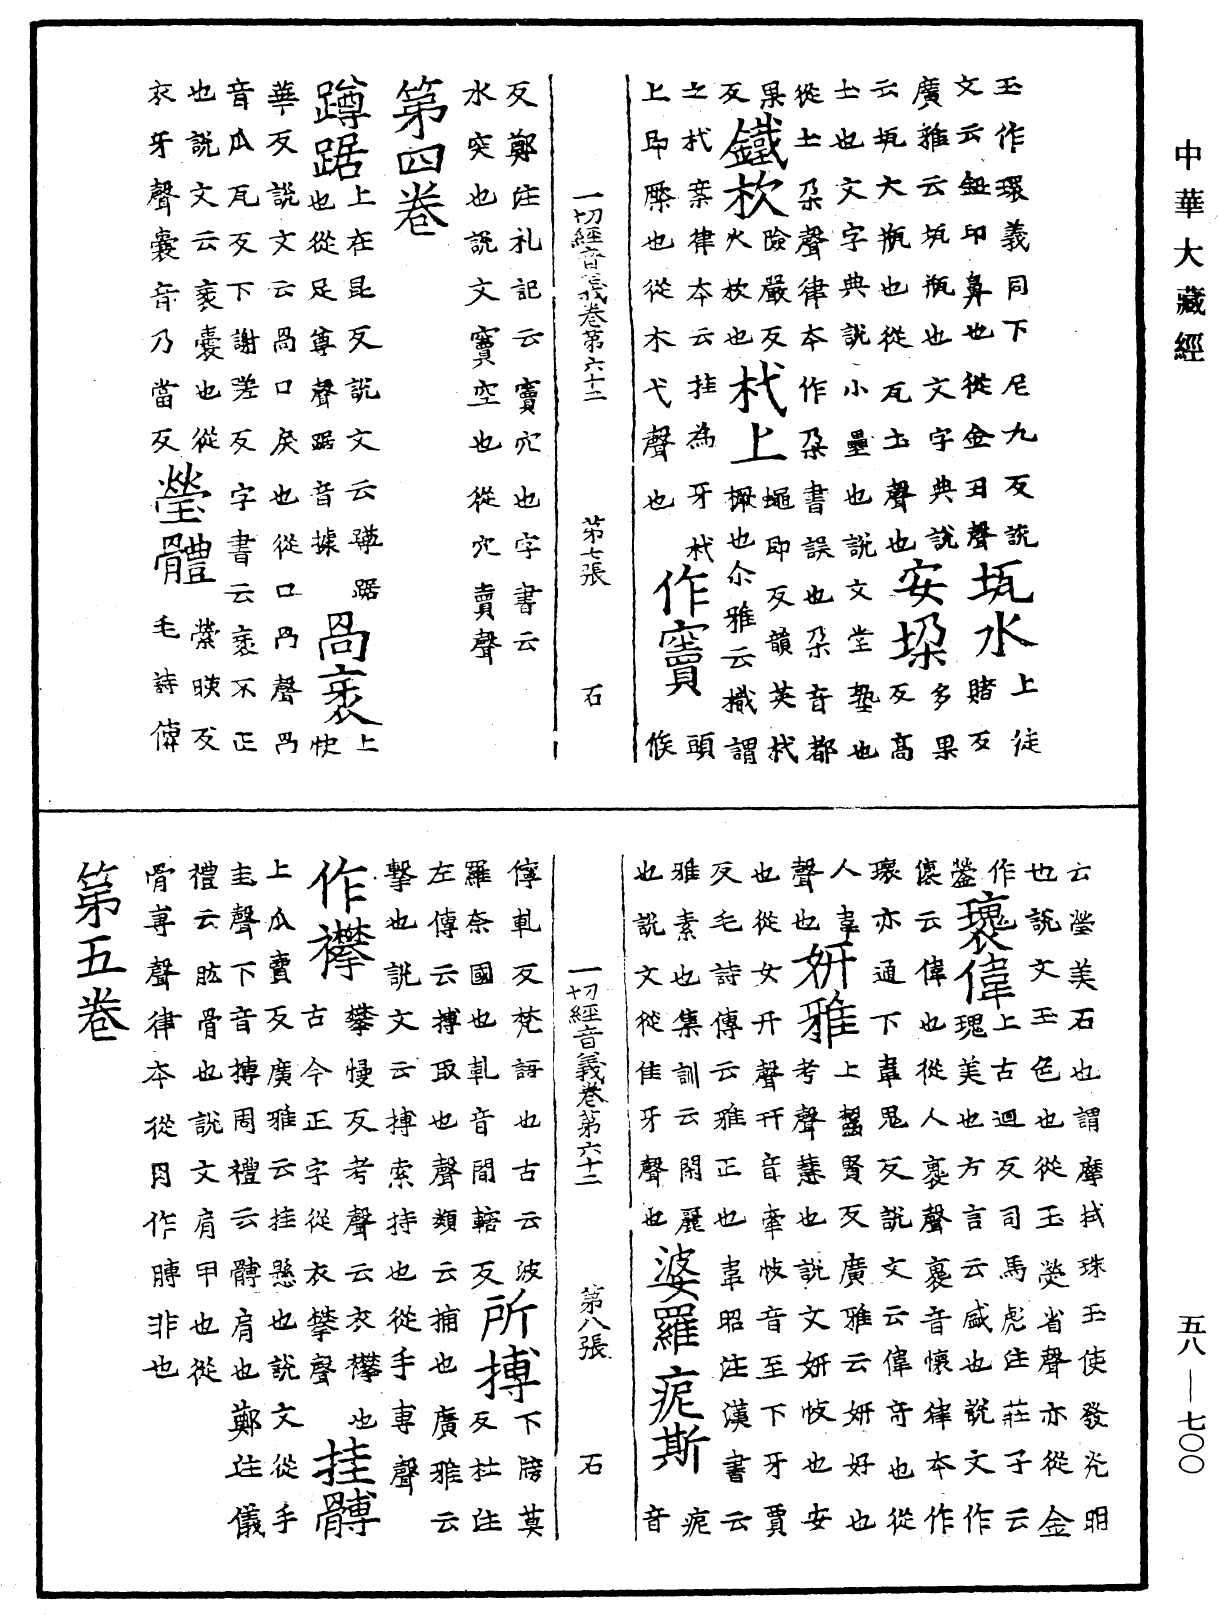 中華大藏經
玉作環義同下尼九反說
文云鈕印鼻也從金丑聲
瓨水
上徒
賭反
廣雅云瓨瓶也文字典說
云瓨大瓶也從瓦土聲也
安垜
多果
反高
士也文字典說小壘也說文堂塾也
從土朶聲律本作朶書誤也朶音都
果
反
鐵杴
險嚴反
火杴也
杙上
蠅即反韻英杙
橛也尒雅云樴謂
之杙案律本云挂為牙杙頭
上即橜也從木弋聲也
作竇
候
一切經音義卷第六十二 第七張 石
反鄭注礼記云竇穴也字書云
水突也說文竇空也從穴賣聲
第四卷
蹲踞
上在昆反說文云蹲踞
也從足尊聲踞音據
咼衺
上
快
華反說文云咼口戾也從口冎聲冎
音瓜瓦反下謝嗟反字書云衺不正
也說文云衺褱也從
衣牙聲褱音乃當反
瑩體
縈暎反
毛詩傳
云瑩美石也謂摩拭珠玉使發光明
也說文玉色也從玉熒省聲亦從金
作
鎣
瓌偉
上古迴反司馬彪注莊子云
瑰美也方言云盛也說文作
傀云偉也從人褱聲褱音懷律本作
瓌亦通下韋鬼反說文云偉奇也從
人韋
聲也
妍雅
上齧賢反廣雅云妍好也
考聲慧也說文妍忮也安
也從女幵聲幵音牽忮音至下牙賈
反毛詩傳云雅正也韋昭注漢書云
雅素也集訓云閑麗
也說文從隹牙聲也
婆羅痆斯
痆
音
一切經音義卷第六十二 第八張 石
儜軋反梵語也古云波
羅奈國也軋音閒轄反
所搏
下膀莫
反杜注
左傳云搏取也聲類云捕也廣雅云
擊也說文云搏索持也從手專聲
作襻
攀慢反考聲云衣襻也
古今正字從衣攀聲
挂髆
上瓜賣反廣雅云挂懸也說文從手
圭聲下音搏周禮云髆肩也鄭注儀
禮云肱骨也說文肩甲也從
骨尃聲律本從月作膊非也
第五卷
五八—七〇〇